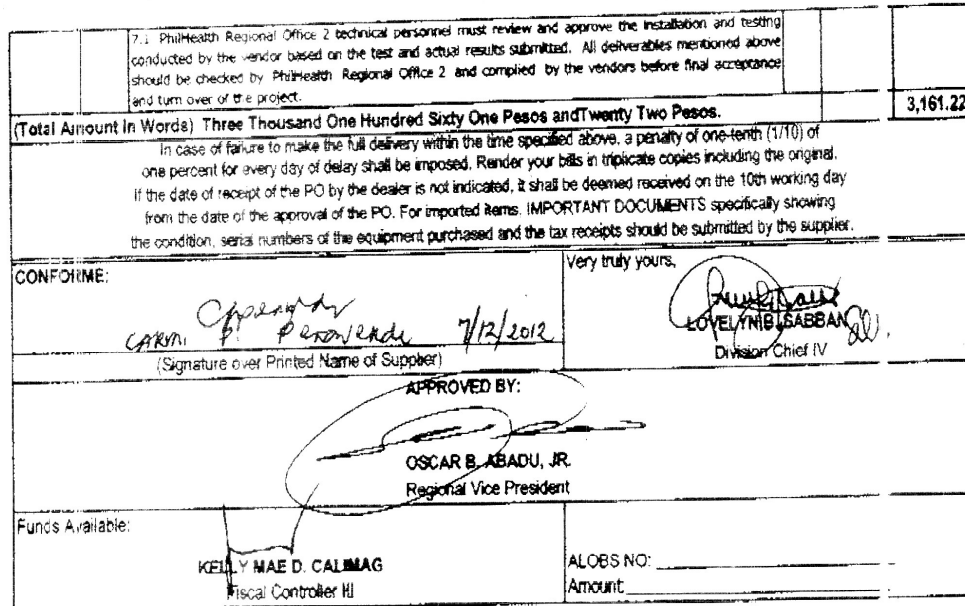 7.1 PhilHealth Regional Office 2 technical personnel must review and approve the installation and testing
conducted by the vendor based on the test and actual results submitted. All deliverables mentioned above
should be checked by PhilHealth Regional Office 2 and complied by the vendors before final acceptance
and turn over of the project.
(Total Amount in Words) Three Thousand One Hundred Sixty One Pesos andTwenty Two Pesos. 3,161.22
In case of failure to make the full delivery within the time specified above, a penalty of one-tenth (1/10) of
one percent for every day of delay shall be imposed. Render your bills in triplicate copies including the original.
If the date of receipt of the PO by the dealer is not indicated, it shall be deemed received on the 10th working day
from the date of the approval of the PO. For imported items. IMPORTANT DOCUMENTS specifically showing
the condition, serial numbers of the equipment purchased and the tax receipts should be submitted by the supplier.
CONFORME:
Very truly yours,
P. 7/12/2012
(Signature over Printed Name of Supplier)
LOVELYN B. SABBAN
Division Chief IV
APPROVED BY:
OSCAR B. ABADU, JR.
Regional Vice President
Funds Available:
KELLY MAE D. CALIMAG
Fiscal Controller III
ALOBS NO:
Amount